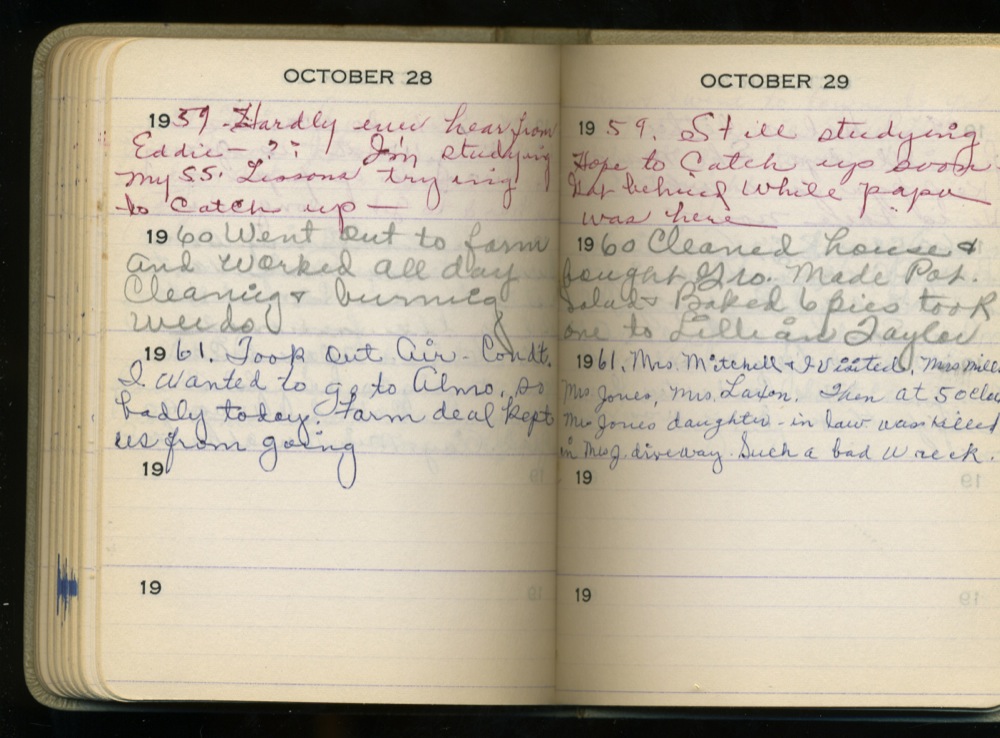 OCTOBER 28
1959. Hardly ever hear from
Eddie - ? ? I'm studying
my SS. Lessons trying
to catch up —
1960 Went out to farm
and worked all day
Cleaning & burning
weeds
1961. Took out Air-Condt.
I wanted to go to Almo, so
badly today. Farm deal kept
us from going
19
19
OCTOBER 29
1959. Still studying
Hope to catch up soon
Got behind while papa
was here
1960 Cleaned house &
bought Gro. Made Pot.
Salad & Baked 6 pies took
one to Lillian Taylor
1961. Mrs. Mitchell & I visited, Mrs
Mrs Jones, Mrs. Laxon. Then at 5 oclock
Mrs Jones daughter-in law was killed
in Mrs J. driveway. Such a bad wreck.
19
19